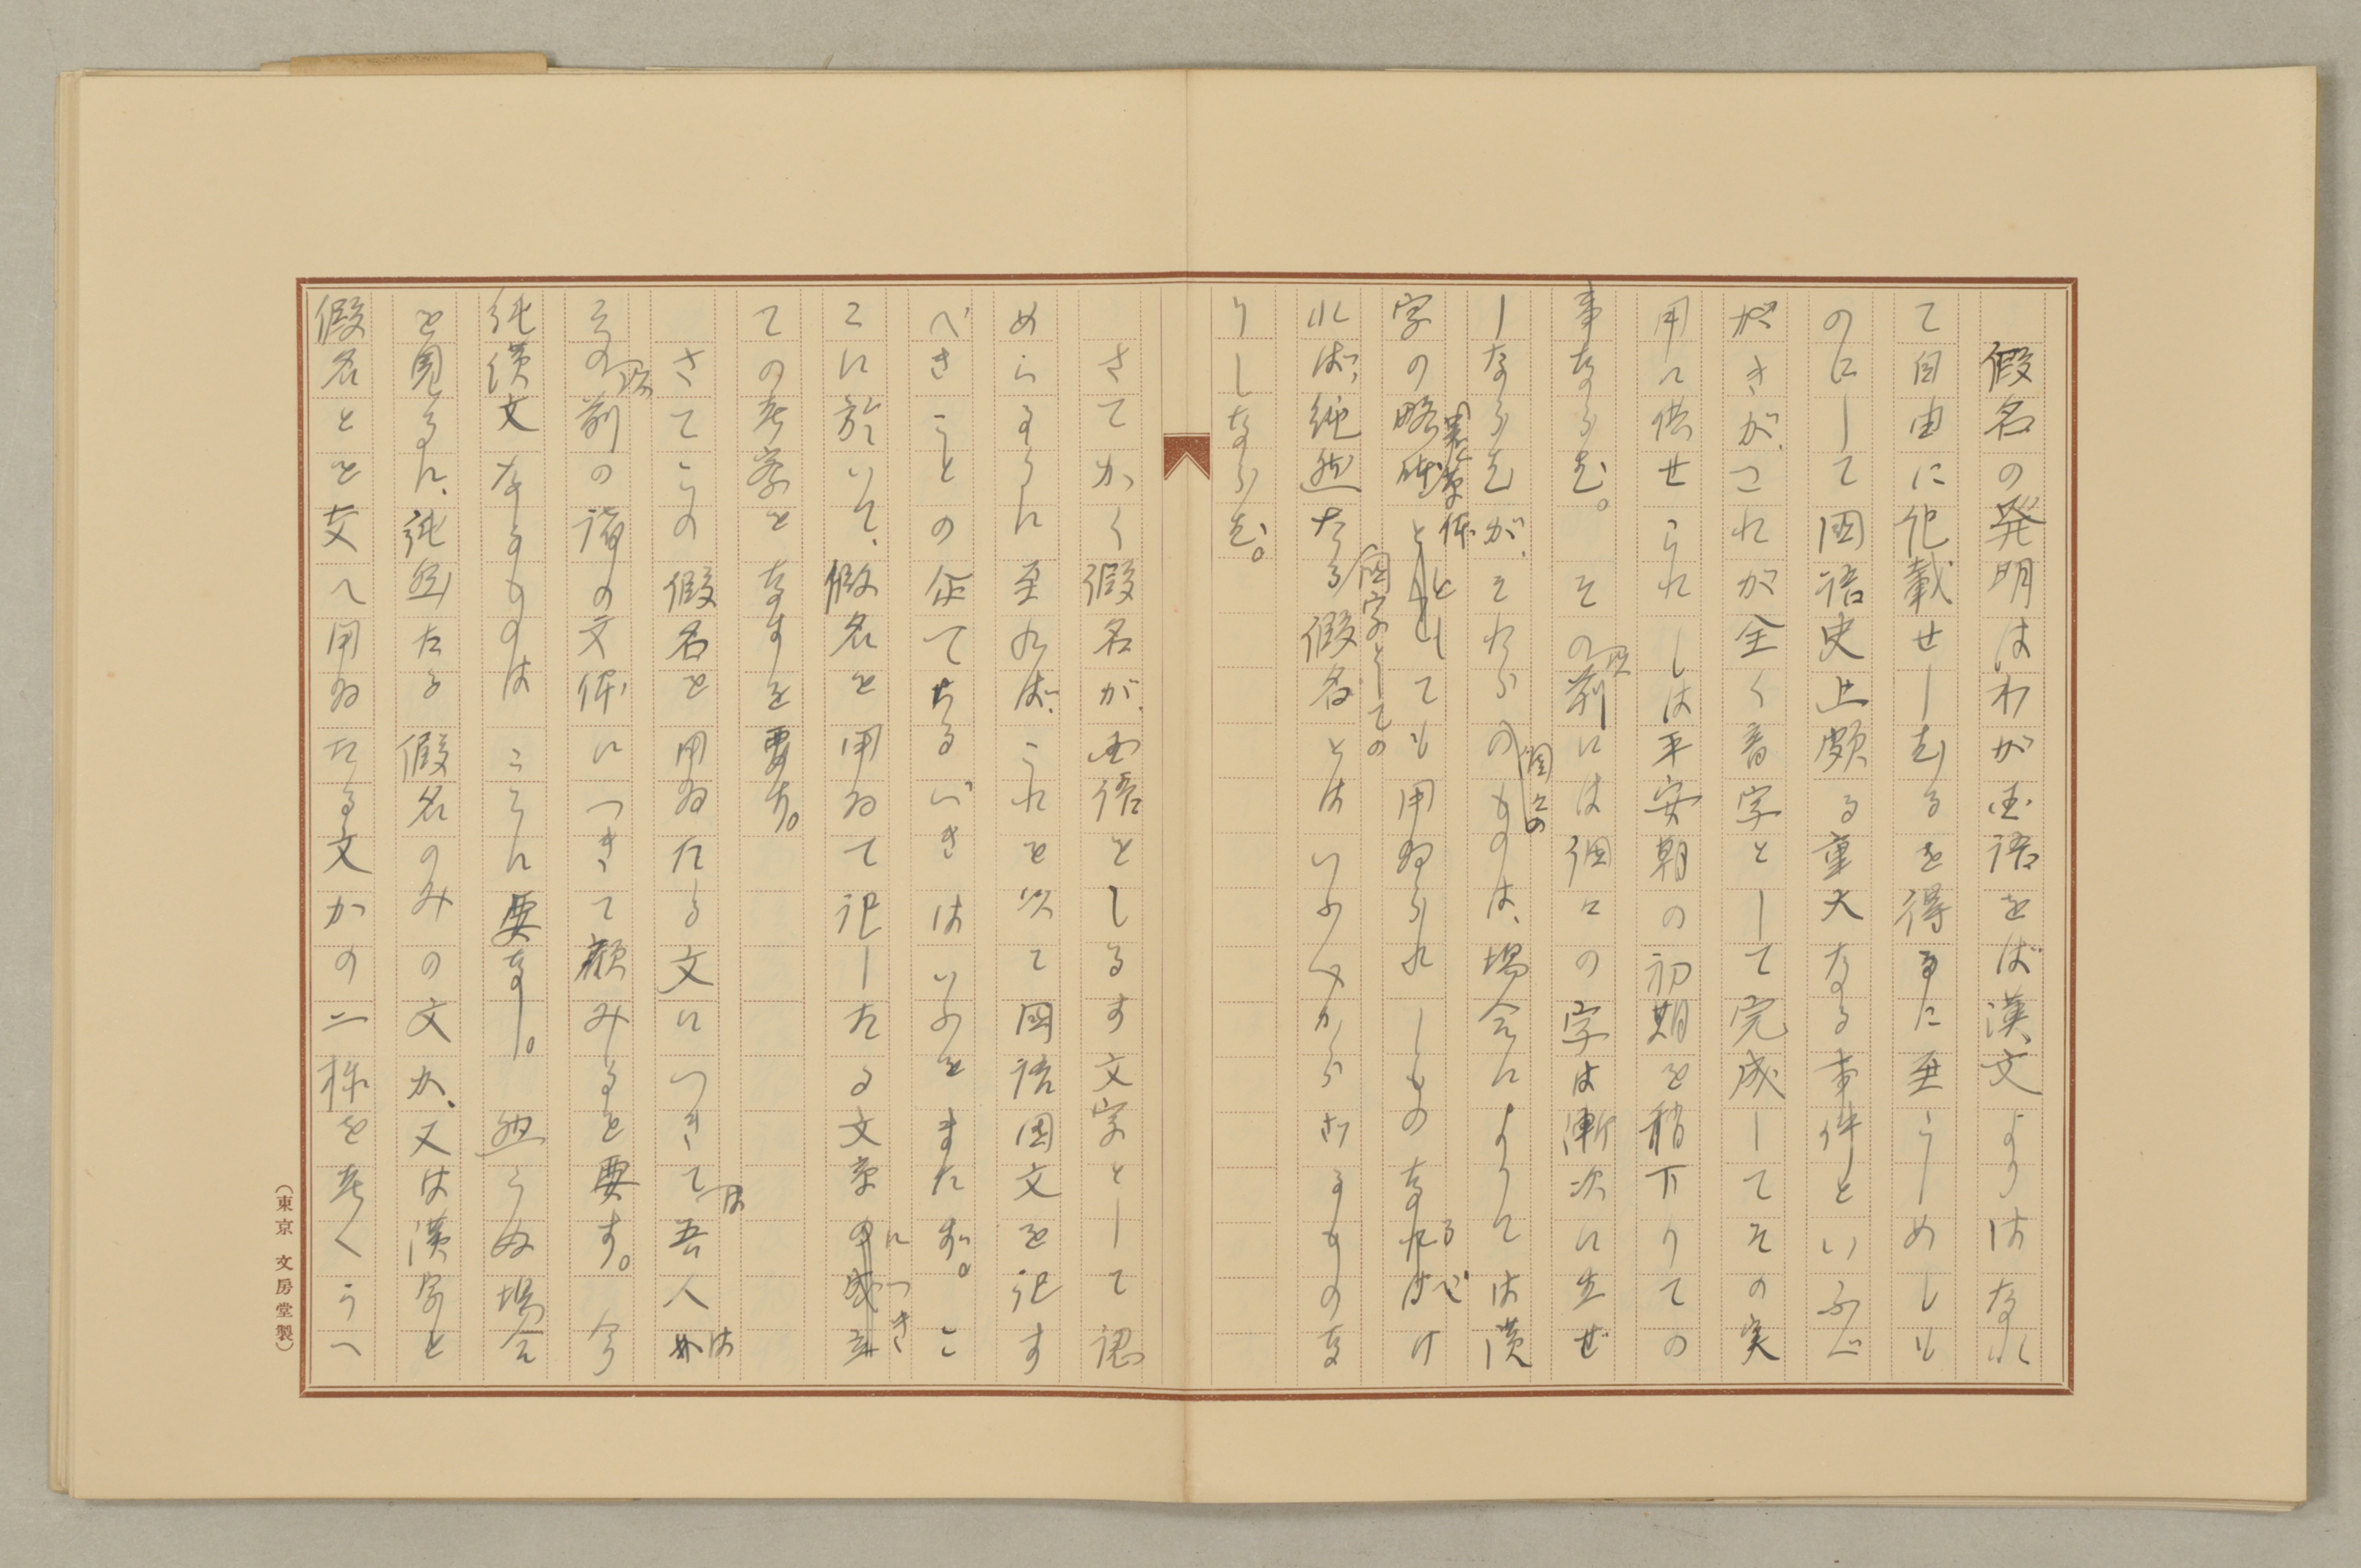 假名の発明はわが国語をば漢文よりはなれ
て自由に記載せしむるを得るに至らしめしも
のにして国語史上頗る重大なる事件といふべ
がきが、これが全く音字として完成してその実
用に供せられしは平安朝の初期を稍下りての
事ならむ。その以前には個々の字は漸次に生ぜ
しならむが、それらのものは、場合によりては漢
個々の
字の略体としても用ゐられしものなるべけ
或は草体と
れば、純然たる假名とはいふべからざるものな
国字としての
りしならむ。
さてかく假名が、国語をしるす文字として認
めらるるに至れば、これを以て国語国文を記す
べきことの企てあるべきはいふをまたず。こ
こに於いて、假名を用ゐて記したる文章につき
ての考察をなすを要す。
さてこの假名を用ゐたる文につきては吾人は
その以前の諸の文体につきて顧みるを要す。今
純漢文なるものはここに要なし。然らぬ場合
を見るに、純然たる假名のみの文か、又は漢字と
假名とを交へ用ゐたる文かの二様を考へうべ
(東京 文房堂製)